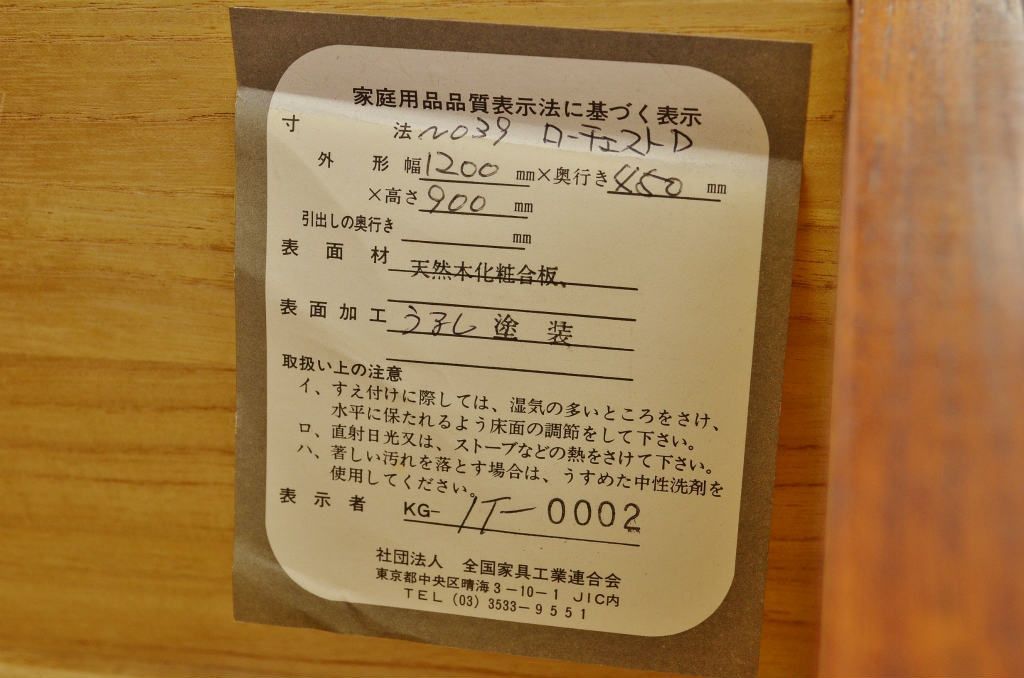 家庭用品品質表示法に基づく表示
寸 法 NO39 ローチェストD
外 形 幅 1200 mm×奥行き 450 mm
×高さ 900 mm
引出しの奥行き mm
表 面 材 天然木化粧合板、
表面加工 うるし 塗 装
取扱い上の注意
イ、すえ付けに際しては、湿気の多いところをさけ、
水平に保たれるよう床面の調節をして下さい。
ロ、直射日光又は、ストーブなどの熱をさけて下さい。
ハ、著しい汚れを落とす場合は、うすめた中性洗剤を
使用してください。
表 示 者 KG-IT-0002
社団法人 全国家具工業連合会
東京都中央区晴海3-10-1 JIC内
TEL (03) 3533-9551